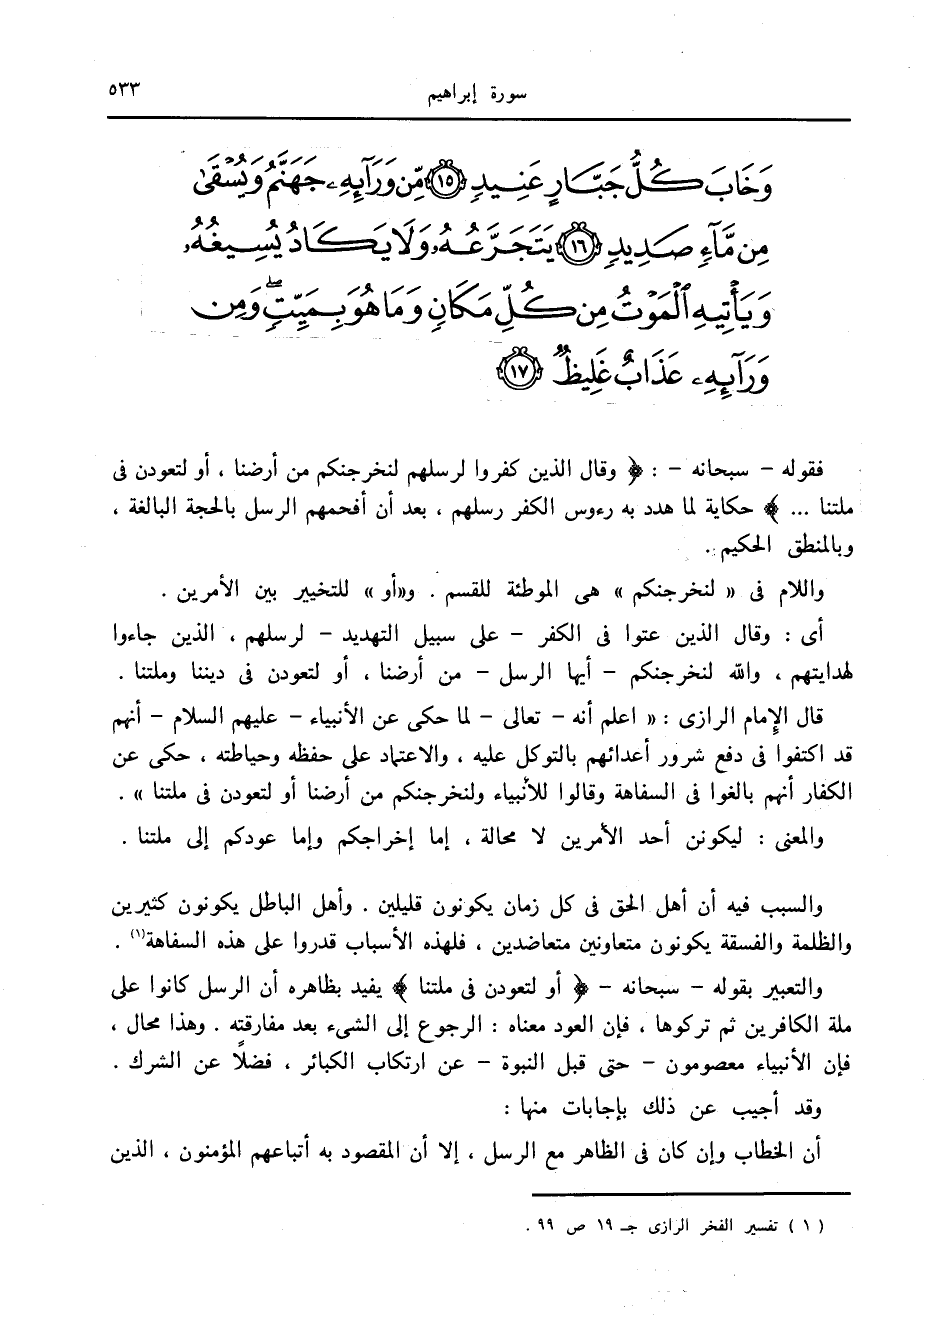 سورة إبراهيم ٥٣٣
وَخَابَ كُلُّ جَبَّارٍ عَنِيدٍ ﴿١٥﴾ مِّن وَرَآئِهِۦ جَهَنَّمُ وَيُسْقَىٰ
مِن مَّآءٍ صَدِيدٍ ﴿١٦﴾ يَتَجَرَّعُهُۥ وَلَا يَكَادُ يُسِيغُهُۥ
وَيَأْتِيهِ ٱلْمَوْتُ مِن كُلِّ مَكَانٍ وَمَا هُوَ بِمَيِّتٍ ۖ وَمِن
وَرَآئِهِۦ عَذَابٌ غَلِيظٌ ﴿١٧﴾
فقوله – سبحانه – : ﴿ وقال الذين كفروا لرسلهم لنخرجنكم من أرضنا ، أو لتعودن فى
ملتنا ... ﴾ حكاية لما هدد به رءوس الكفر رسلهم ، بعد أن أفحمهم الرسل بالحجة البالغة ،
وبالمنطق الحكيم .
واللام فى « لنخرجنكم » هى الموطئة للقسم . و«أو » للتخيير بين الأمرين .
أى : وقال الذين عتوا فى الكفر – على سبيل التهديد – لرسلهم ، الذين جاءوا
لهدايتهم ، والله لنخرجنكم – أيها الرسل – من أرضنا ، أو لتعودن فى ديننا وملتنا .
قال الإمام الرازى : « اعلم أنه – تعالى – لما حكى عن الأنبياء – عليهم السلام – أنهم
قد اكتفوا فى دفع شرور أعدائهم بالتوكل عليه ، والاعتماد على حفظه وحياطته ، حكى عن
الكفار أنهم بالغوا فى السفاهة وقالوا للأنبياء ولنخرجنكم من أرضنا أو لتعودن فى ملتنا » .
والمعنى : ليكونن أحد الأمرين لا محالة ، إما إخراجكم وإما عودكم إلى ملتنا .
والسبب فيه أن أهل الحق فى كل زمان يكونون قليلين . وأهل الباطل يكونون كثيرين
والظلمة والفسقة يكونون متعاونين متعاضدين ، فلهذه الأسباب قدروا على هذه السفاهة(١) .
والتعبير بقوله – سبحانه – ﴿ أو لتعودن فى ملتنا ﴾ يفيد بظاهره أن الرسل كانوا على
ملة الكافرين ثم تركوها ، فإن العود معناه : الرجوع إلى الشىء بعد مفارقته . وهذا محال ،
فإن الأنبياء معصومون – حتى قبل النبوة – عن ارتكاب الكبائر ، فضلًا عن الشرك .
وقد أجيب عن ذلك بإجابات منها :
أن الخطاب وإن كان فى الظاهر مع الرسل ، إلا أن المقصود به أتباعهم المؤمنون ، الذين
( ١ ) تفسير الفخر الرازى جـ ١٩ ص ٩٩ .